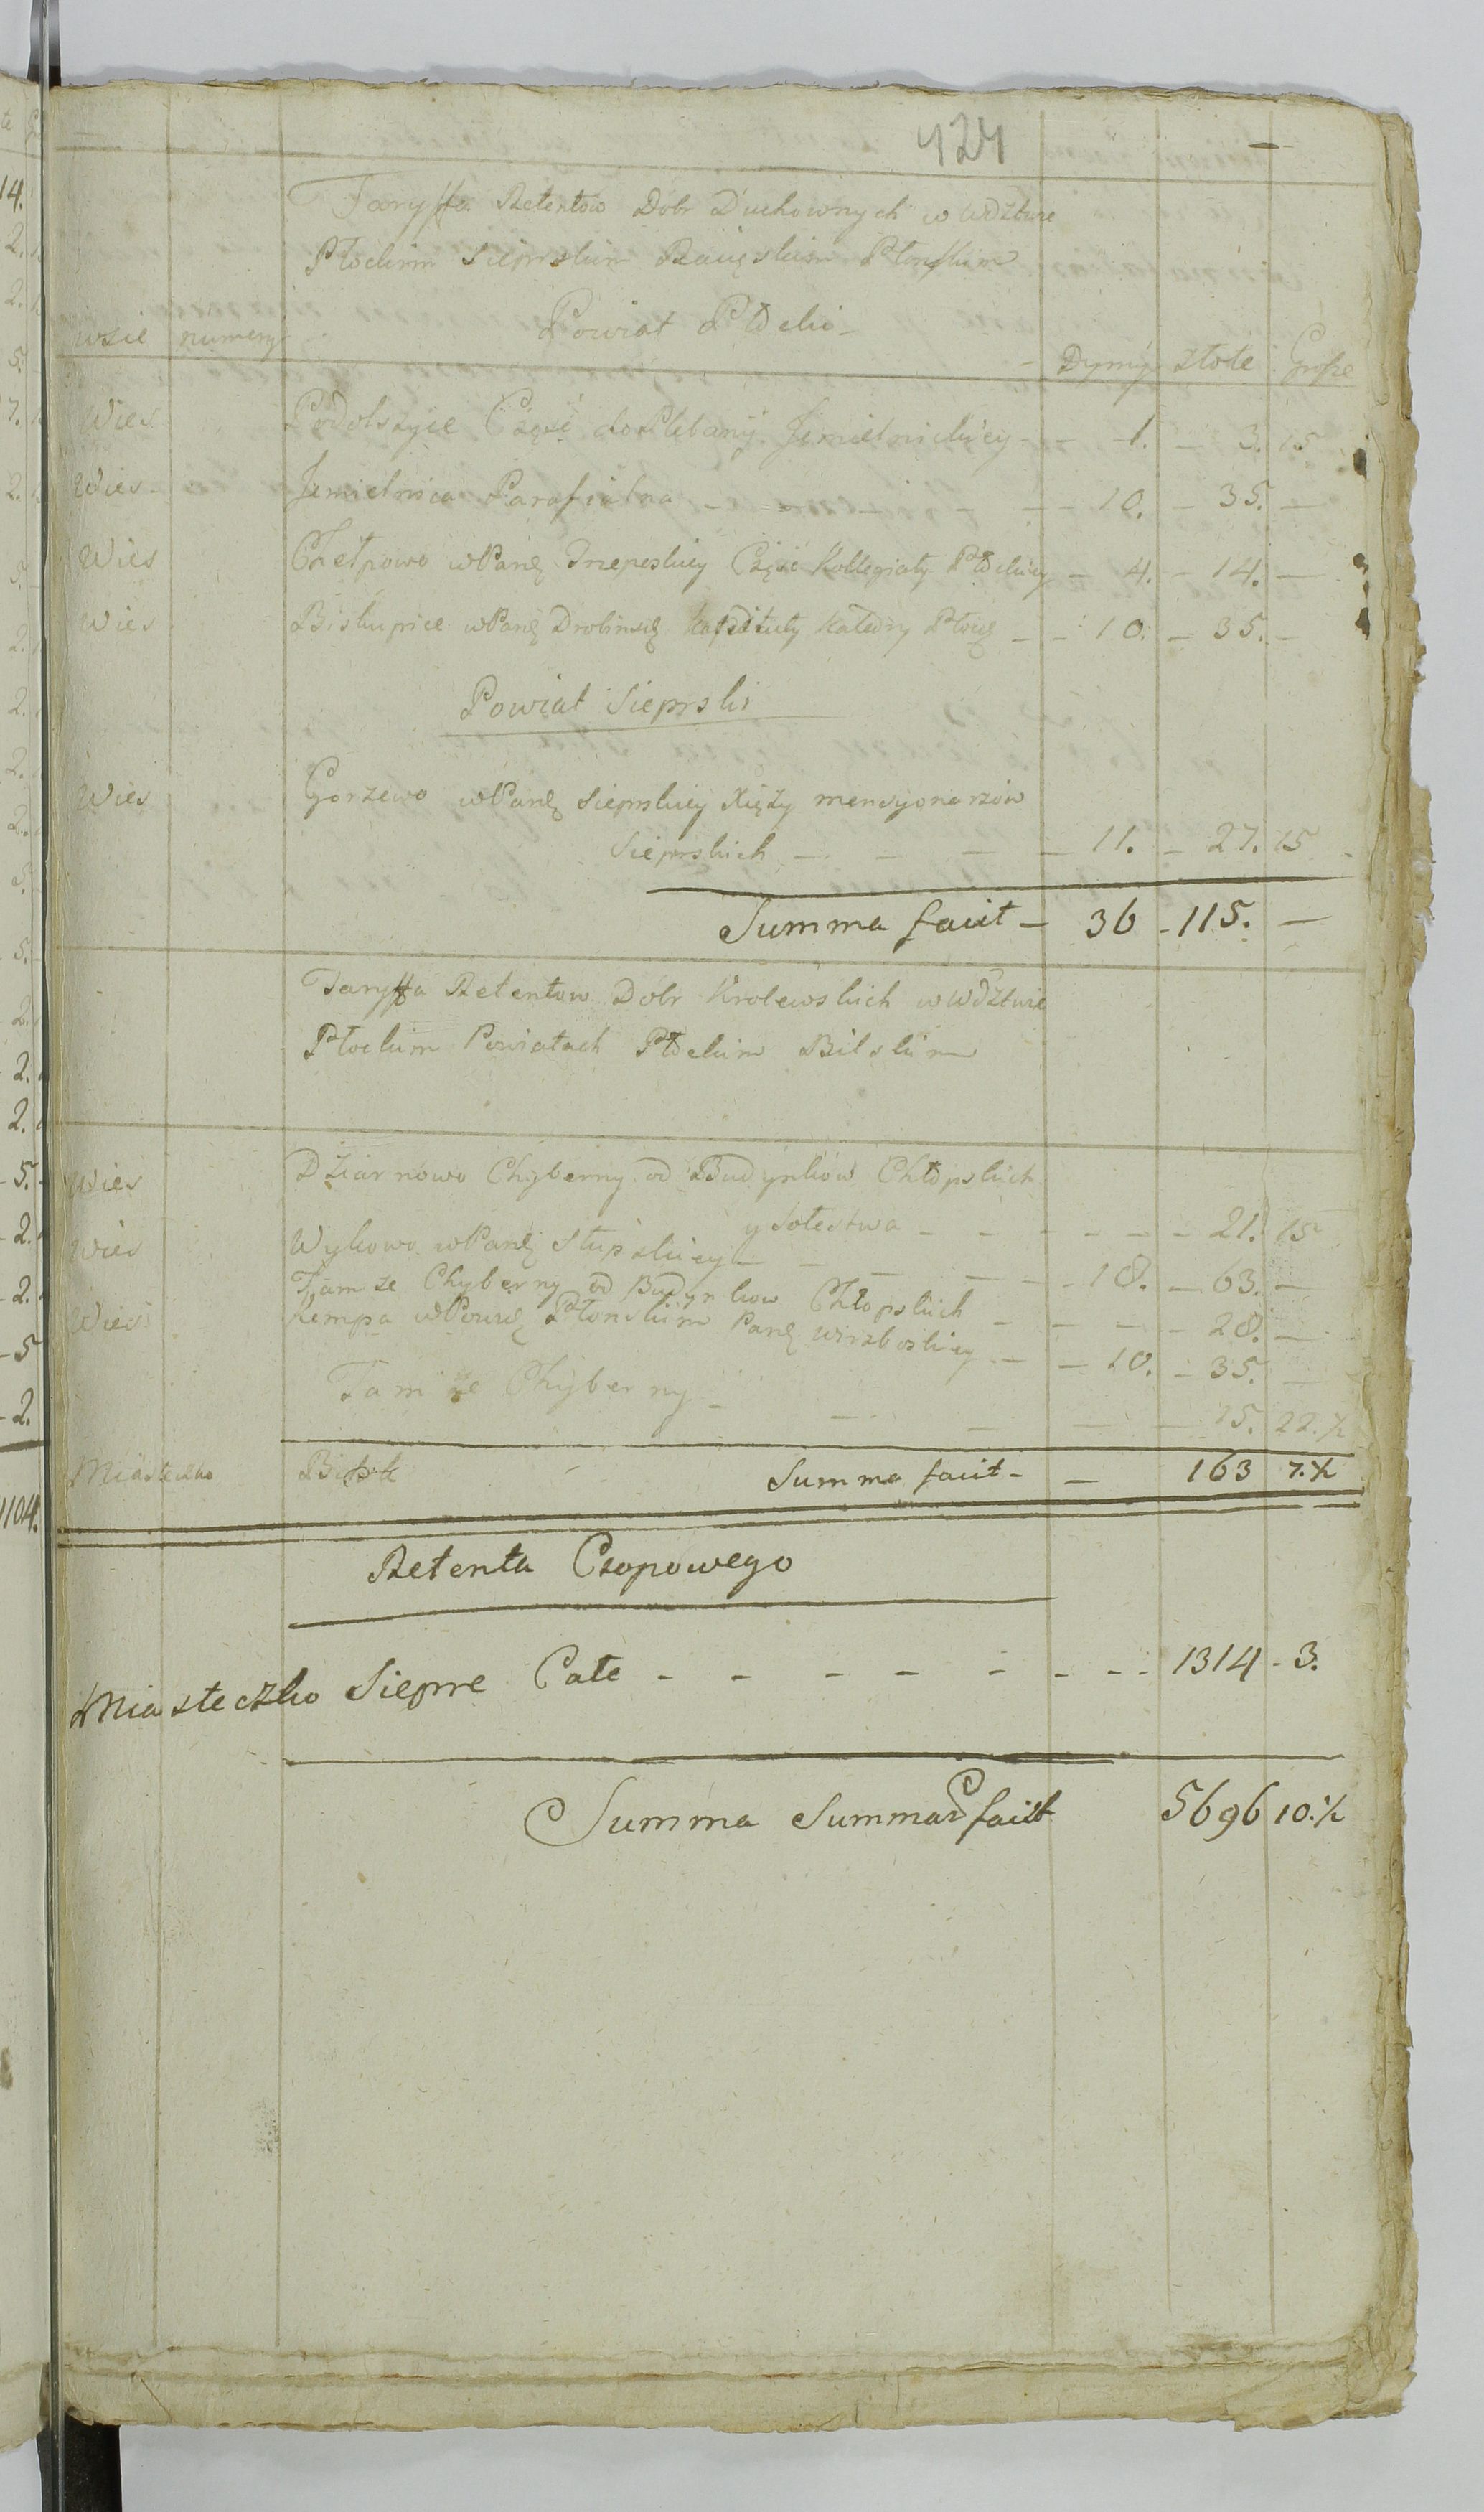 424
Taryffa Retentow Dobr Duchownych w Wdztwie
Płockim Sieprskim Raciąskim Płonskim
Powiat Płocki
wsie numery Dymy złote Grosze
Wies Podolszyce Częsć do Plebanÿ Jmielnickiey - - 1. - 3. 15
Wies Jmielnica Parafialna - - - - 10. - 35. -
Wies Chełpowo w Parỹ Trzepeskiey Częsć Kollegiaty Płockiey - 4. - 14. -
Wies Biskupice w Parỹ Drobinskỹ Kapituły Katedry Płockỹ - - 10. - 35. -
Powiat Sieprski
Wies Gorzewo w Parỹ Sieprskiey Xięży mensyonarzow
Sieprskich - - - - 11. - 27. 15
Summa facit - 36 - 115. -
Taryffa Retentow Dobr Krolewskich w Wdztwie
Płockim Powiatach Płockim Bilskim
Wies Dziarnowo Chyberny od Budynkow Chłopskich
y Sołectwa - - - - - - 21. 15
Wies Wykowo w Parỹ Słupskiey - - - - - 18. - 63. -
Tamze Chyberny od Budynkow Chłopskich - - - - 28. -
Wies Kempa w Powiẽ Płonskim Parỹ - - 10. - 35. -
Tamze Chyberny - - - - - 15. 22.½
Miasteczko Summa facit - - 163 7.½
Retenta Czopowego
Miasteczko Sieprc Całe - - - - - - - - 1314 - 3.
Summa Summarũ facit 5696 10.½
14.
2.
2.
5.
7.
2.
5.
2.
2.
2.
2.
5.
5.
2.
2.
2.
5.
2.
2.
5
2.
1104.